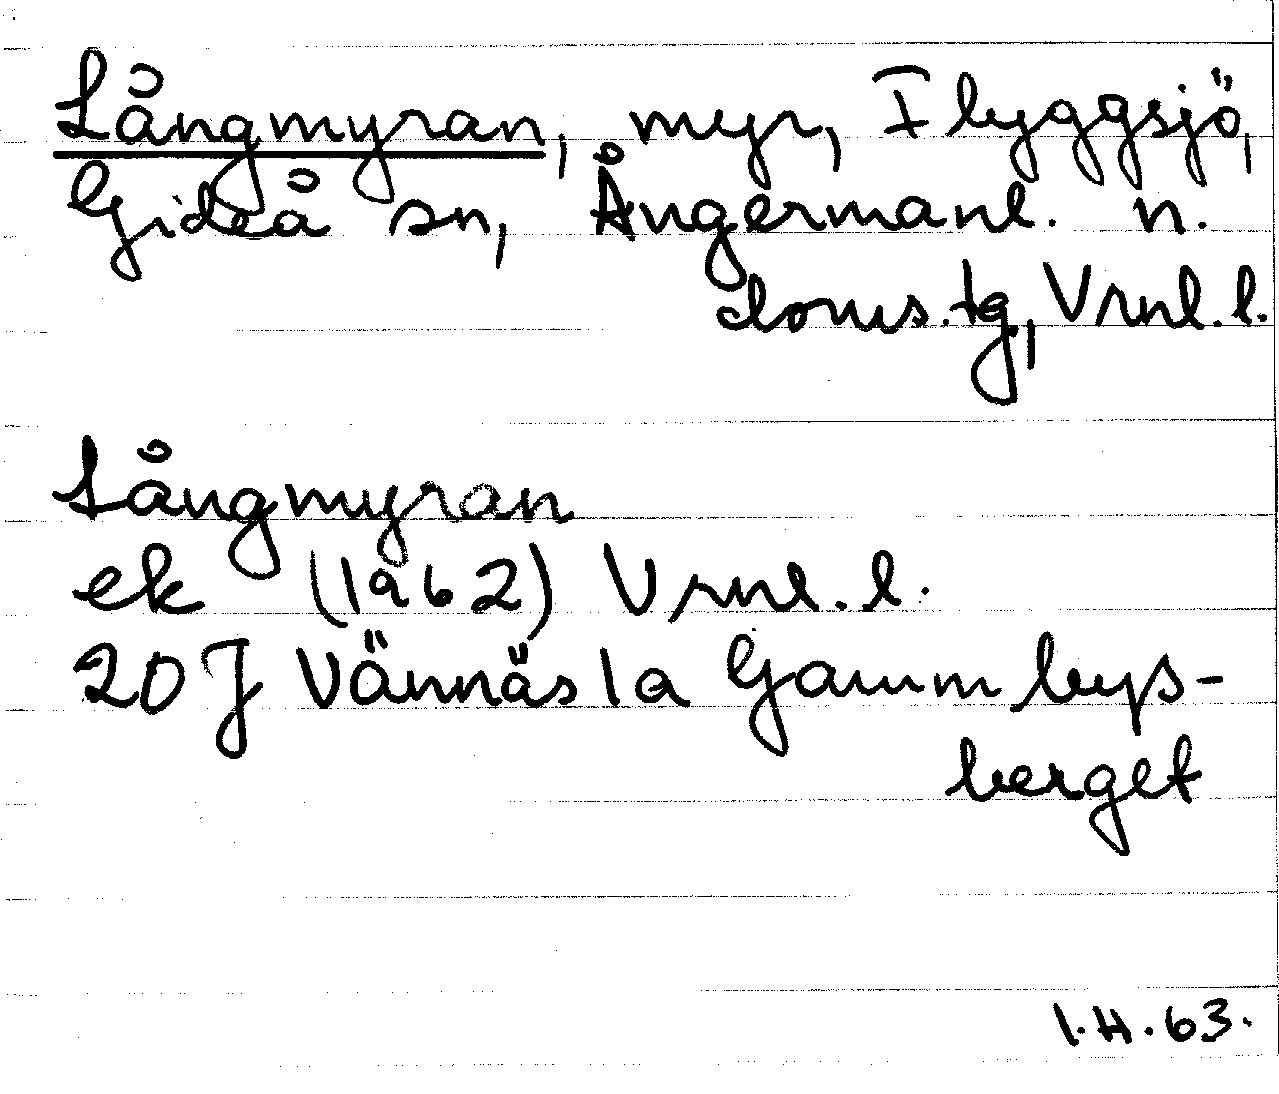 Långmyran, myr, Flyggsjö,
Gideå sn, Ångermanl. n.
doms.tg, Vrnl. l.
Långmyran
ek (1962) Vrnl. l.
20 J Vännäs 1a Gammbys-
berget
I.H.63.